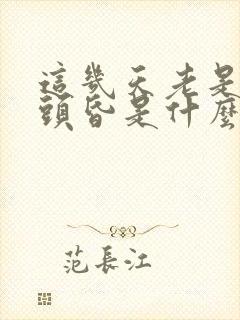 這幾天老是
頭昏是什麼
范長江